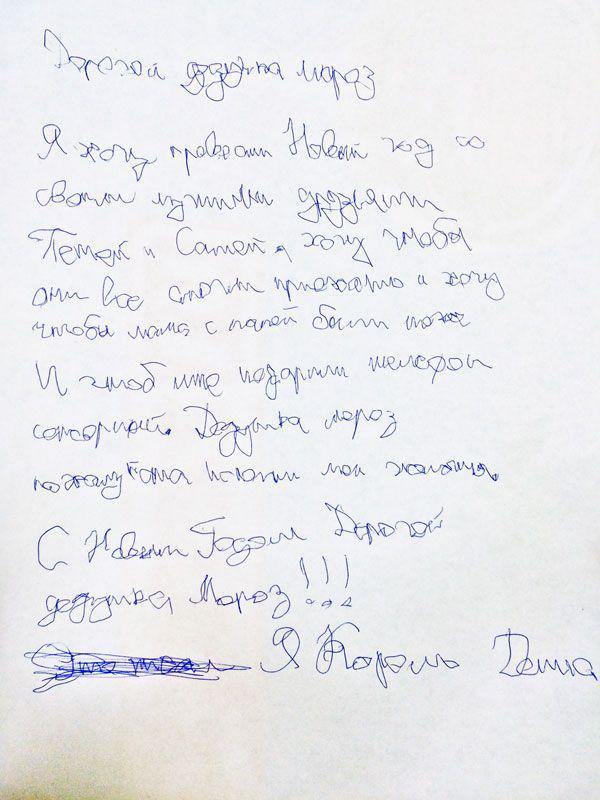 Дорогой дедушка мороз
Я хочу правести Новый год со
своими лучшими друзьями
Петей и Сашей, хочу чтобы
они все смогли приехать и хочу
чтобы мама с папой были тоже
И чтоб мне подарили телефон
сенсорный. Дедушка мороз
пожалуйста исполни мои желания.
С Новым Годом Дорогой
дедушка Мороз!!!
Я Король Дима